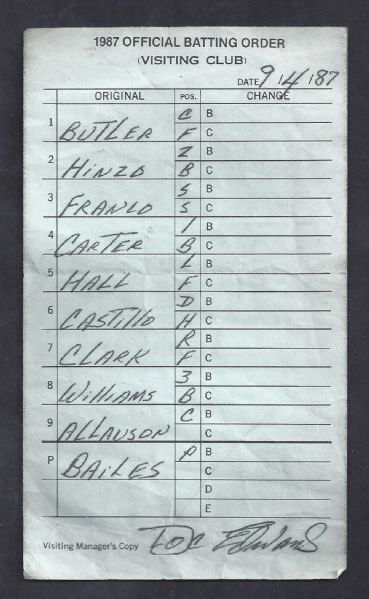 1987 OFFICIAL BATTING ORDER
(VISITING CLUB)
DATE 9/4/87
ORIGINAL POS. CHANGE
1 BUTLER CF B C
2 HINZO 2B B C
3 FRANCO SS B C
4 CARTER 1B B C
5 HALL LF B C
6 CASTILLO DH B C
7 CLARK RF B C
8 WILLIAMS 3B B C
9 ALLANSON C B C
P BAILES P B C
D
E
Visiting Manager's Copy Doc Edwards